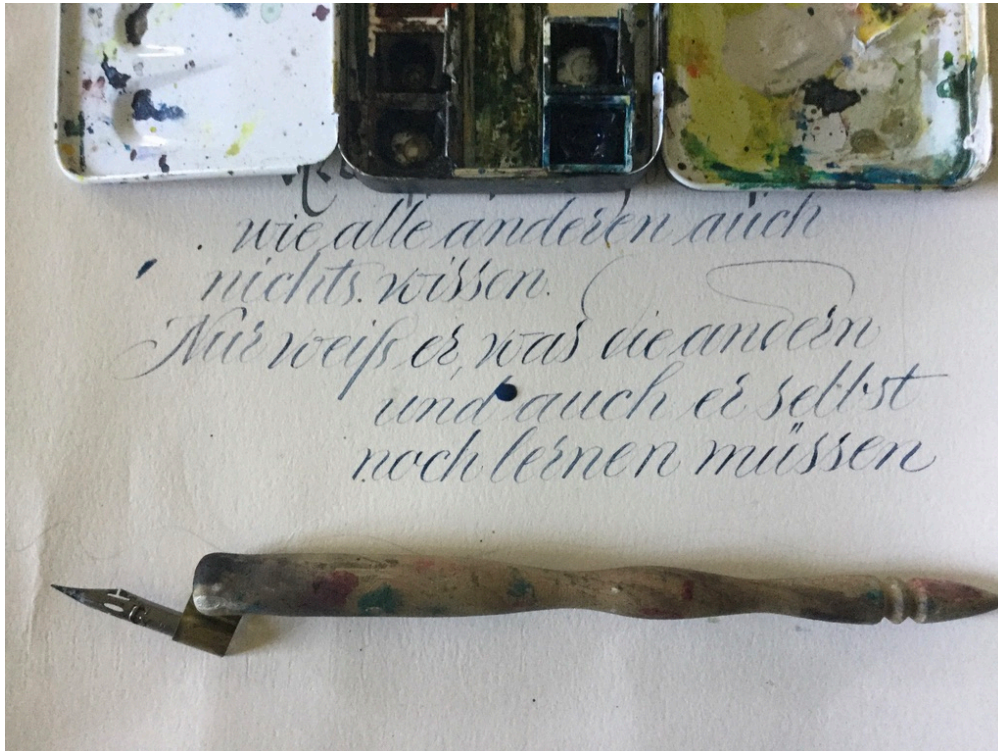 wie alle anderen auch
nichts wissen.
Nur weiß er, was die andern
und auch er selbst
noch lernen müssen